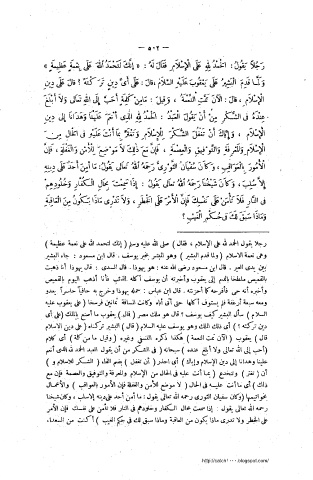 — ٥٠٢ —
رَجُلًا يَقُولُ: الْحَمْدُ لِلهِ عَلَى الْإِسْلَامِ فَقَالَ لَهُ: «إِنَّكَ لَتَحْمَدُ اللهَ عَلَى نِعْمَةٍ عَظِيمَةٍ»
وَلَمَّا قَدِمَ الْبَشِيرُ عَلَى يَعْقُوبَ عَلَيْهِ السَّلَامُ قَالَ: عَلَى أَيِّ دِينٍ تَرَكْتَهُ؟ قَالَ عَلَى دِينِ
الْإِسْلَامِ، قَالَ: الْآنَ تَمَّتِ النِّعْمَةُ، وَقِيلَ: مَا مِنْ كَلِمَةٍ أَحَبَّ إِلَى اللهِ تَعَالَى وَلَا أَبْلَغَ
عِنْدَهُ فِي الشُّكْرِ مِنْ أَنْ يَقُولَ الْعَبْدُ: الْحَمْدُ لِلهِ الَّذِي أَنْعَمَ عَلَيْنَا وَهَدَانَا إِلَى دِينِ
الْإِسْلَامِ، وَإِيَّاكَ أَنْ تَغْفُلَ الشُّكْرَ لِلْإِسْلَامِ وَتَغْتَرَّ بِمَا أَنْتَ عَلَيْهِ فِي الْحَالِ مِنَ
الْإِسْلَامِ وَالْمَعْرِفَةِ وَالتَّوْفِيقِ وَالْعِصْمَةِ، فَإِنَّ مَعَ ذَلِكَ لَا مَوْضِعَ لِلْأَمْنِ وَالْغَفْلَةِ، فَإِنَّ
الْأُمُورَ بِالْعَوَاقِبِ، وَكَانَ سُفْيَانُ الثَّوْرِيُّ رَحِمَهُ اللهُ تَعَالَى يَقُولُ: مَا أَمِنَ أَحَدٌ عَلَى دِينِهِ
إِلَّا سُلِبَ، وَكَانَ شَيْخُنَا رَحِمَهُ اللهُ تَعَالَى يَقُولُ: إِذَا سَمِعْتَ بِحَالِ الْكُفَّارِ وَخُلُودِهِمْ
فِي النَّارِ فَلَا تَأْمَنْ عَلَى نَفْسِكَ فَإِنَّ الْأَمْرَ عَلَى الْخَطَرِ، وَلَا تَدْرِي مَاذَا يَكُونُ مِنَ الْعَاقِبَةِ
وَمَاذَا سَبَقَ لَكَ فِي حُكْمِ الْغَيْبِ؟
رجلا يقول الحمد لله على الإسلام، فقال) صلى الله عليه وسلم (إنك لتحمد الله على نعمة عظيمة)
وهى نعمة الإسلام (ولما قدم البشير) وهو المبشر بخبر يوسف. قال ابن مسعود: جاء البشير
بين يدى العير. قال ابن مسعود رضى الله عنه: هو يهوذا. قال السدى: قال يهوذا أنا ذهبت
بالقميص ملطخا بالدم إلى يعقوب وأخبرته أن يوسف أكله الذئب فأنا أذهب اليوم بالقميص
وأخبره أنه حى فأفرحه كما أحزنته. قال ابن عباس: حمله يهوذا وخرج به حافيا حاسرا يعدو
ومعه سبعة أرغفة لم يستوف أكلها حتى أتى أباه وكانت المسافة ثمانين فرسخا (على يعقوب عليه
السلام) سأل البشير كيف يوسف؟ قال هو ملك مصر (قال) يعقوب ما أصنع بالملك (على أى
دين تركته؟) أى ذلك الملك وهو يوسف عليه السلام (قال) البشير تركناه (على دين الاسلام
قال) يعقوب (الآن تمت النعمة) هكذا ذكره النسفى وغيره (وقيل ما من كلمة) أى كلام
(أحب إلى الله تعالى ولا أبلغ عنده) سبحانه (فى الشكر من أن يقول العبد الحمد لله الذى أنعم
علينا وهدانا إلى دين الاسلام وإياك) أى احذر (أن تغفل) بضم الفاء (الشكر للإسلام و)
أن (تغتر) وتنخدع (بما أنت عليه فى الحال من الإسلام والمعرفة والتوفيق والعصمة فإن مع
ذلك) أى ما أنت عليه فى الحال (لا موضع للأمن والغفلة فإن الأمور بالعواقب) والأعمال
بخواتيمها (وكان سفيان الثورى رحمه الله تعالى يقول: ما أمن أحد على دينه إلا سلب، وكان شيخنا
رحمه الله تعالى يقول: إذا سمعت بحال الكفار وخلودهم فى النار فلا تأمن على نفسك فإن الأمر
على الخطر ولا تدرى ماذا يكون من العاقبة وماذا سبق لك فى حكم الغيب) أكتبت من السعداء،